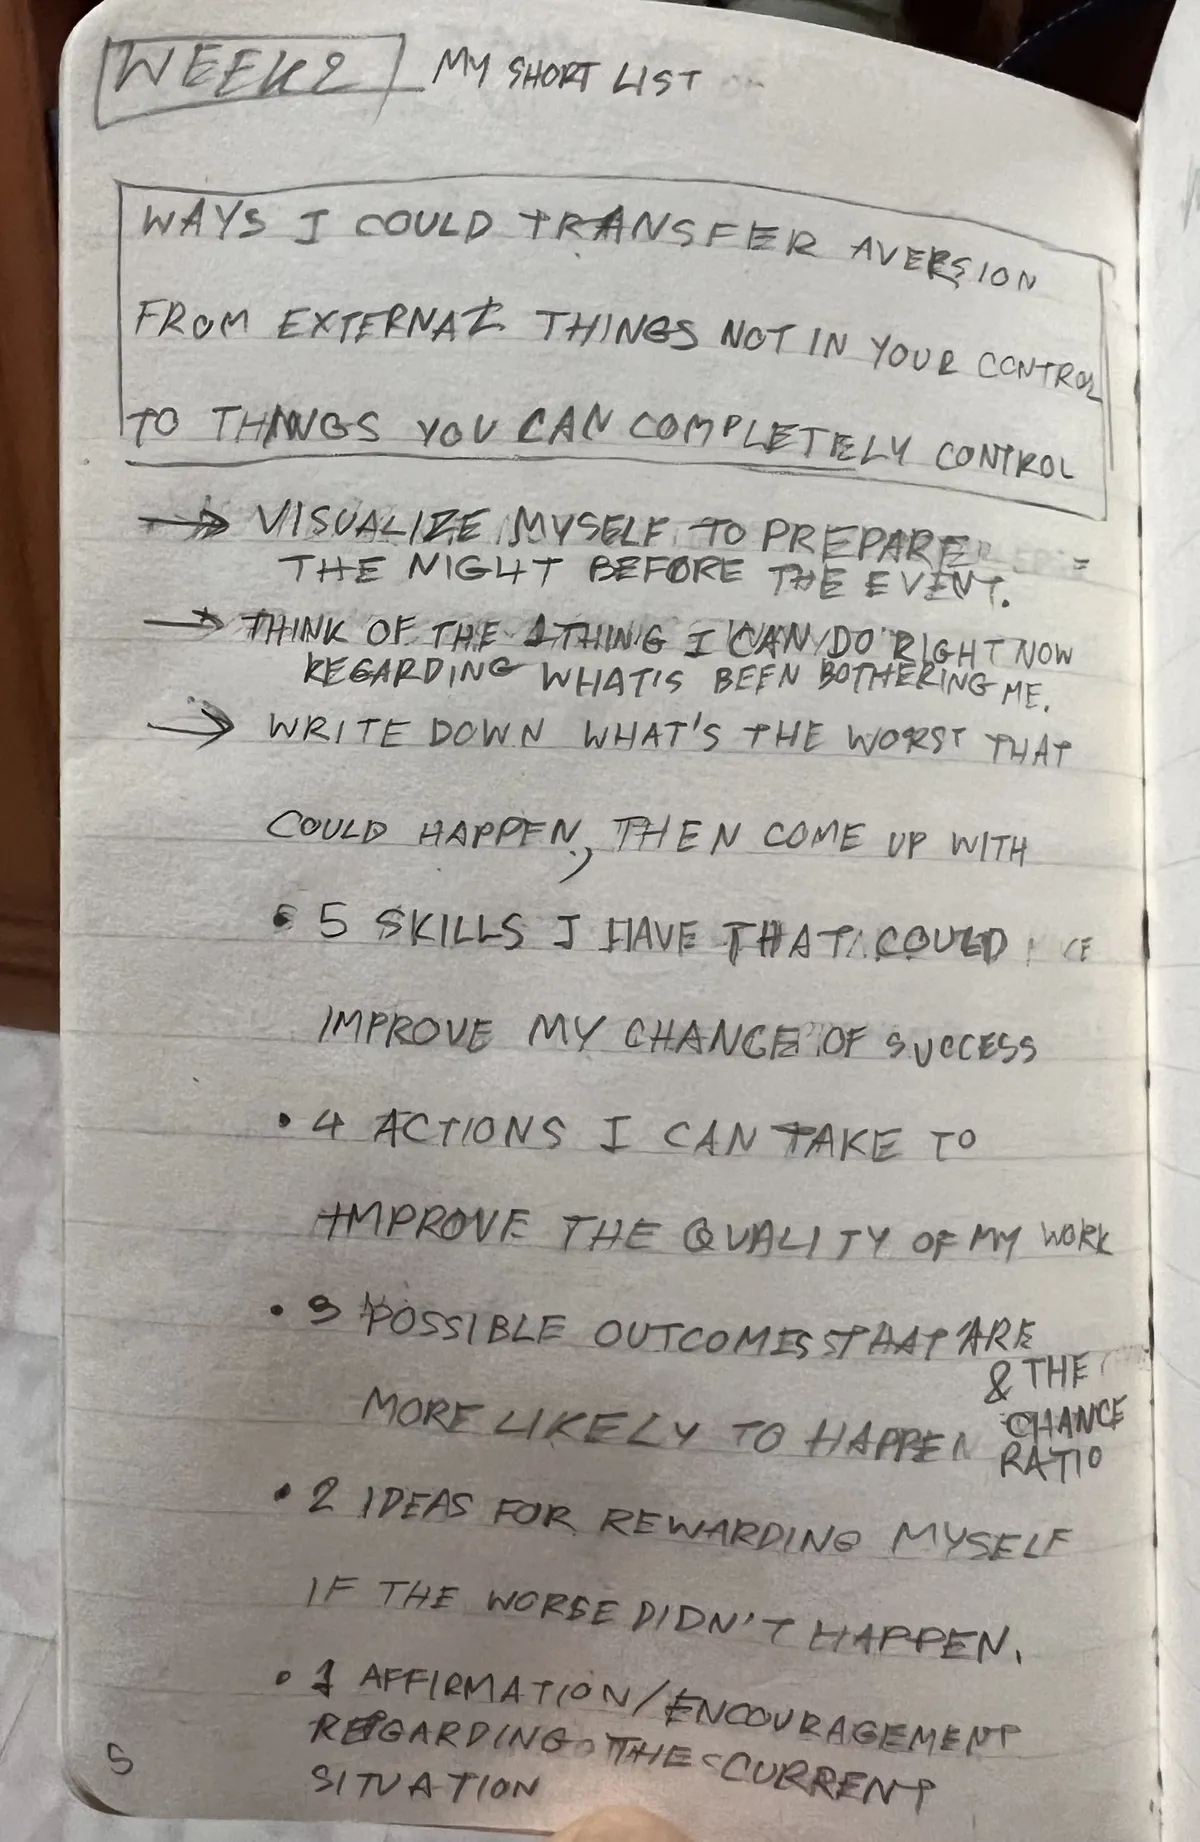 WEEK 2 MY SHORT LIST
WAYS I COULD TRANSFER AVERSION
FROM EXTERNAL THINGS NOT IN YOUR CONTROL
TO THINGS YOU CAN COMPLETELY CONTROL
→ VISUALIZE MYSELF TO PREPARE
THE NIGHT BEFORE THE EVENT.
→ THINK OF THE 1 THING I CAN DO RIGHT NOW
REGARDING WHAT'S BEEN BOTHERING ME.
→ WRITE DOWN WHAT'S THE WORST THAT
COULD HAPPEN, THEN COME UP WITH
• 5 SKILLS I HAVE THAT COULD
IMPROVE MY CHANCE OF SUCCESS
• 4 ACTIONS I CAN TAKE TO
IMPROVE THE QUALITY OF MY WORK
• 3 POSSIBLE OUTCOMES THAT ARE
MORE LIKELY TO HAPPEN & THE
CHANCE
RATIO
• 2 IDEAS FOR REWARDING MYSELF
IF THE WORSE DIDN'T HAPPEN.
• 1 AFFIRMATION/ENCOURAGEMENT
REGARDING THE CURRENT
SITUATION
5